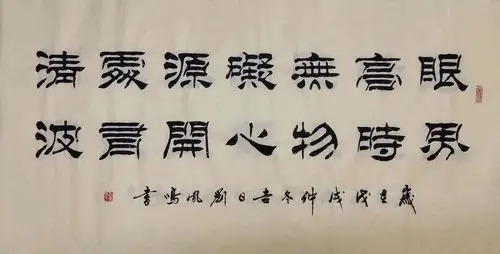 眼界
高時
無物
礙心
源開
處有
清波
歲在戊戌仲冬吉日劉鳳鳴書